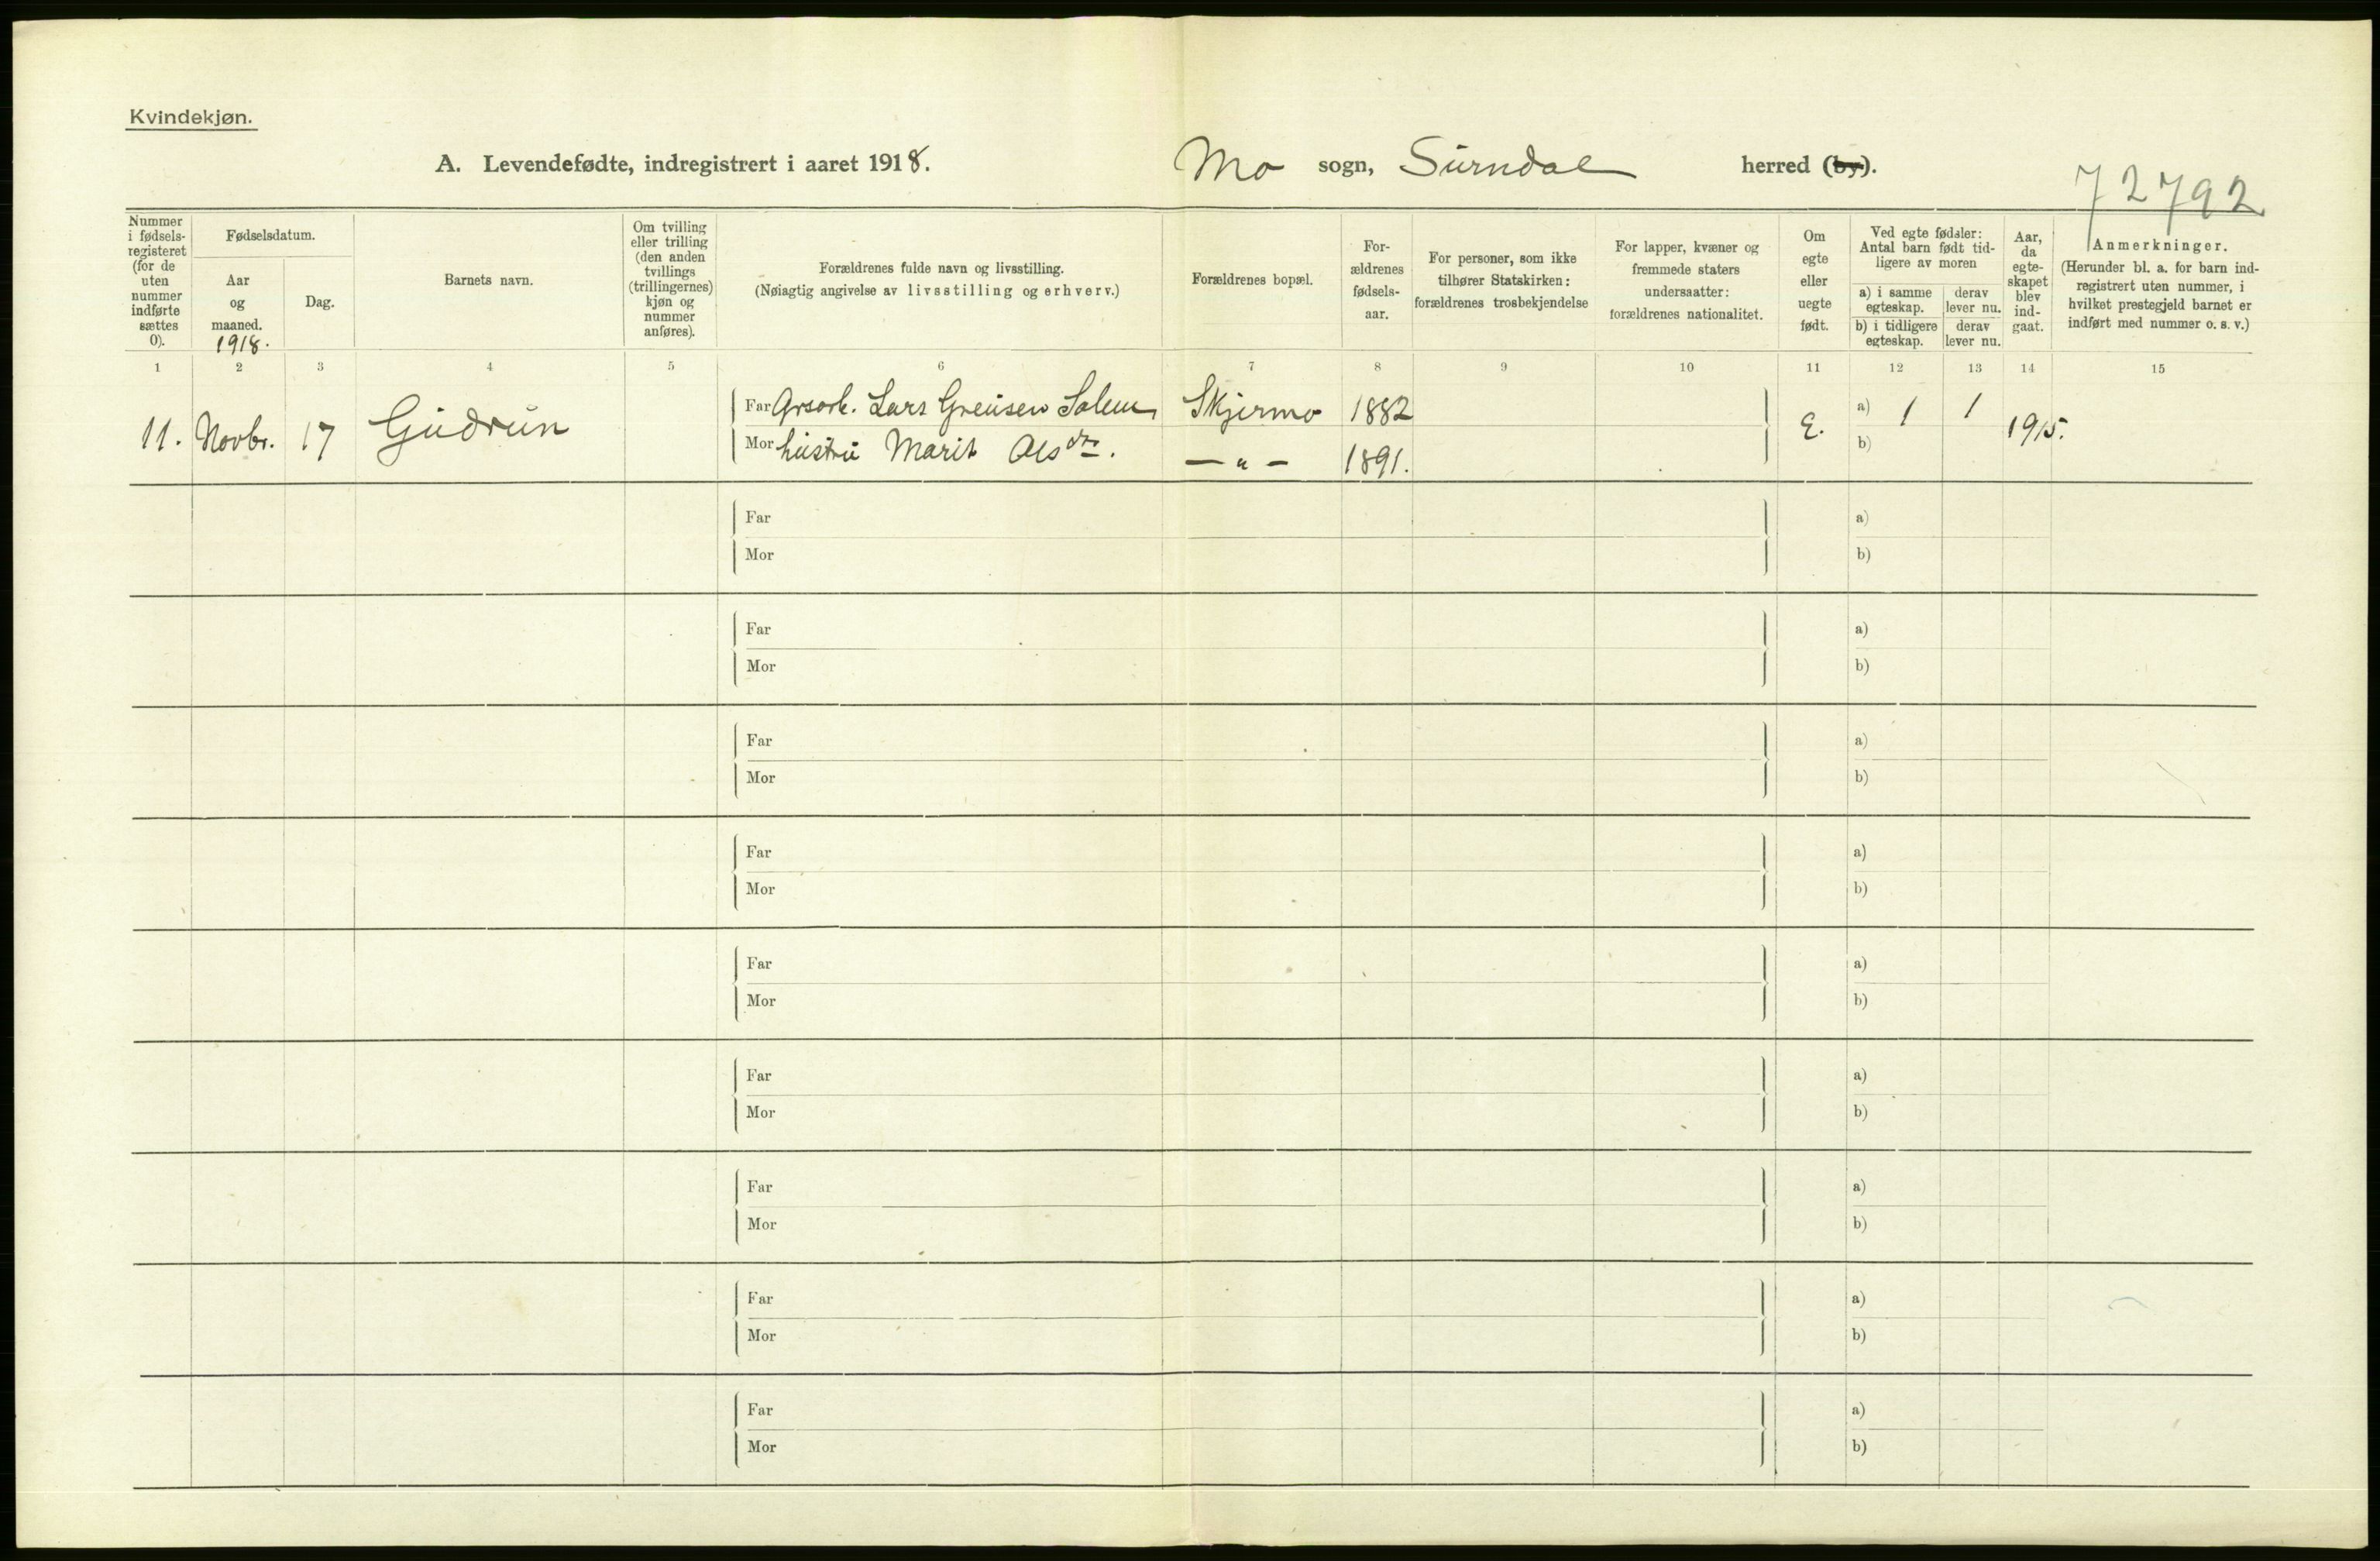 Kvindekjøn.
A. Levendefødte, indregistrert i aaret 1918.
Mo sogn, Surndal herred (by).
72792
Nummer i fødsels-registeret (for de uten nummer indførte sættes 0).
Fødselsdatum.
Aar og maaned.
1918.
Dag.
Barnets navn.
Om tvilling eller trilling (den anden tvillings (trillingernes) kjøn og nummer anføres).
Forældrenes fulde navn og livsstilling.
(Nøiagtig angivelse av livsstilling og erhverv.)
Forældrenes bopæl.
For-ældrenes fødsels-aar.
For personer, som ikke tilhører Statskirken: forældrenes trosbekjendelse
For lapper, kvæner og fremmede staters undersaatter: forældrenes nationalitet.
Om egte eller uegte født.
Ved egte fødsler: Antal barn født tid-ligere av moren
a) i samme egteskap.
derav lever nu.
b) i tidligere egteskap.
derav lever nu.
Aar, da egte-skapet blev ind-gaat.
Anmerkninger.
(Herunder bl. a. for barn ind-registrert uten nummer, i hvilket prestegjeld barnet er indført med nummer o. s. v.)
1 2 3 4 5 6 7 8 9 10 11 12 13 14 15
11. Novbr. 17 Gudrun
Far Lars Salem Skjermo 1882
E. a) 1 1 1915.
Mor hustru Marit Olsdtr. — " — 1891.
b)
Far a)
Mor b)
Far a)
Mor b)
Far a)
Mor b)
Far a)
Mor b)
Far a)
Mor b)
Far a)
Mor b)
Far a)
Mor b)
Far a)
Mor b)
Far a)
Mor b)